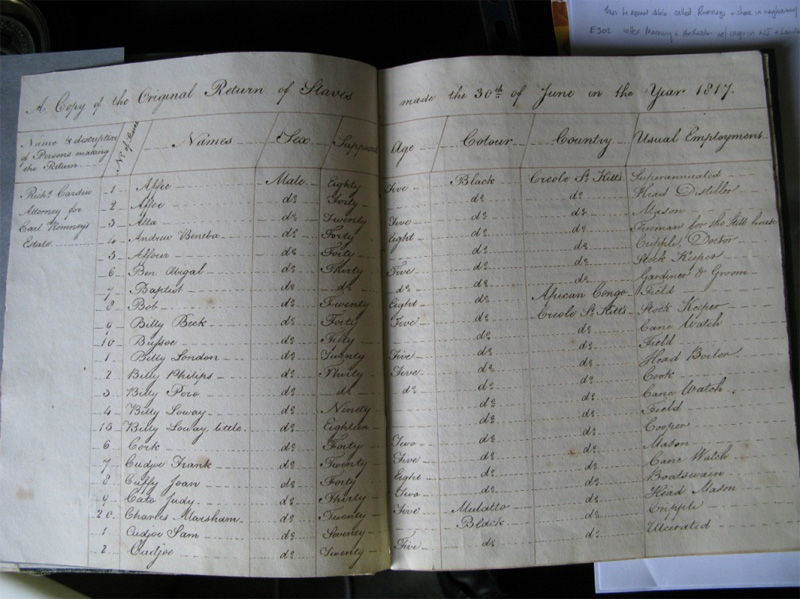 A Copy of the Original Return of Slaves made the 30th of June in the Year 1817.
Name & description of Persons making the Return
No. of
Names Sex Supposed Age Colour Country Usual Employment
Richd. Cardin
Attorney for
Earl Romneys
Estate
1 Affee Male Eighty Five Black Creole St. Kitts Superannuated
2 Affee do Forty do do Head Distiller
3 Atta do Twenty Five do do Mason
4 Andrew Beneba do Forty Eight do do Fireman for the Still house
5 Affour do Forty do do Cripple, Doctor
6 Ben Abigal do Thirty Five do do Stock Keeper
7 Baptist do do do do do Gardiner & Groom
8 Bob do Twenty Eight do African Congo Field
9 Billy Beck do Forty Five do Creole St. Kitts Stock Keeper
10 Bussoe do Fifty do do Cane Watch
1 Billy London do Twenty Five do do Field
2 Billy Philips do Thirty Five do do Head Boiler
3 Billy Pere do do do do do Cook
4 Billy Loway do Ninety do do Cane Watch
15 Billy Loway little do Eighteen do do Field
6 Cork do Forty Two do do Cooper
7 Cudjoe Frank do Twenty Five do do Mason
8 Cuffy Joan do Forty Eight do do Cane Watch
9 Cato Judy do Thirty Two do do Boatswain
20 Charles Marsham do Twenty Five Mulatto do Head Mason
1 Cudjoe Sam do Seventy Black do Cripple
2 Cudjoe do Twenty Five do do Ulcerated